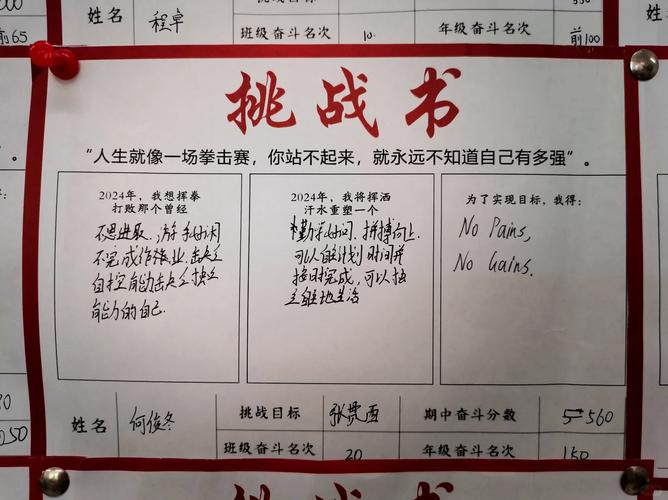 000
前65
姓名
程卓
班级奋斗名次
10.
年级奋斗名次
前100
挑战书
“人生就像一场拳击赛，你站不起来，就永远不知道自己有多强”。
2024年，我想挥拳
打败那个曾经
不思进取、游手好闲
不完成作业、缺乏
自控能力缺乏独立
能力的自己.
2024年，我将挥洒
汗水重塑一个
勤学好问、拼搏向上
可以自主计划时间并
按时完成，可以独
立自主地生活
为了实现目标，我得：
No Pains,
No Gains.
姓名
何俊冬
挑战目标
张贯西
期中奋斗分数
560
班级奋斗名次
20
年级奋斗名次
150
50
挑战书